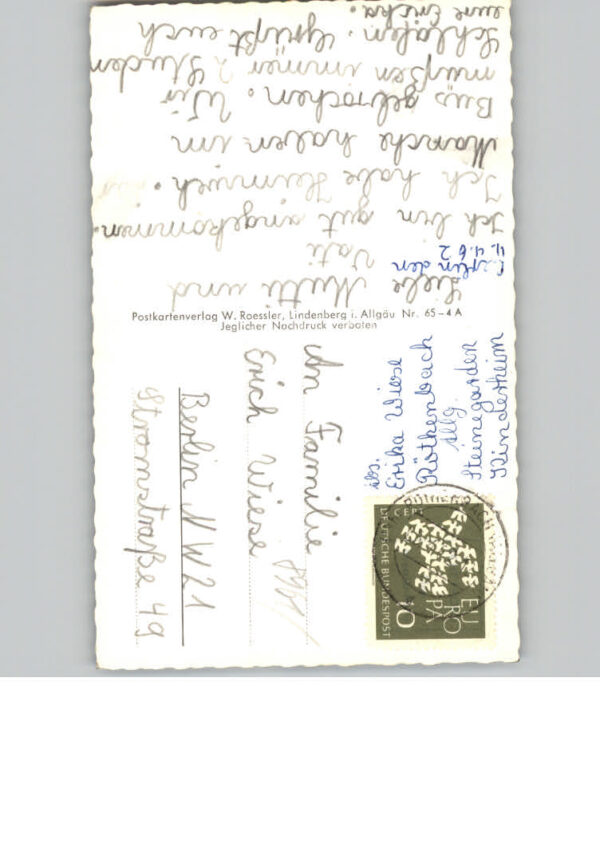 Berlin den
4.4.62
Liebe Mutti und
Vati
Ich bin gut angekommen.
Ich habe Heimweh.
Manche haben im
Bus gebrochen. Wir
müßen immer 2 Studen
Schlafen. Grüßt euch
eure Ericka.
Postkartenverlag W. Roessler, Lindenberg i. Allgäu Nr. 65-4 A
Jeglicher Nachdruck verboten
Abs.
Erika Wiese
Röthenbach
Allg.
Steinegarden
Kinderheim
EU
RO
PA
CEPT
10
DEUTSCHE BUNDESPOST
RÖTHENBACH
An Familie
Erich Wiese
Berlin NW21
Stromstraße 49